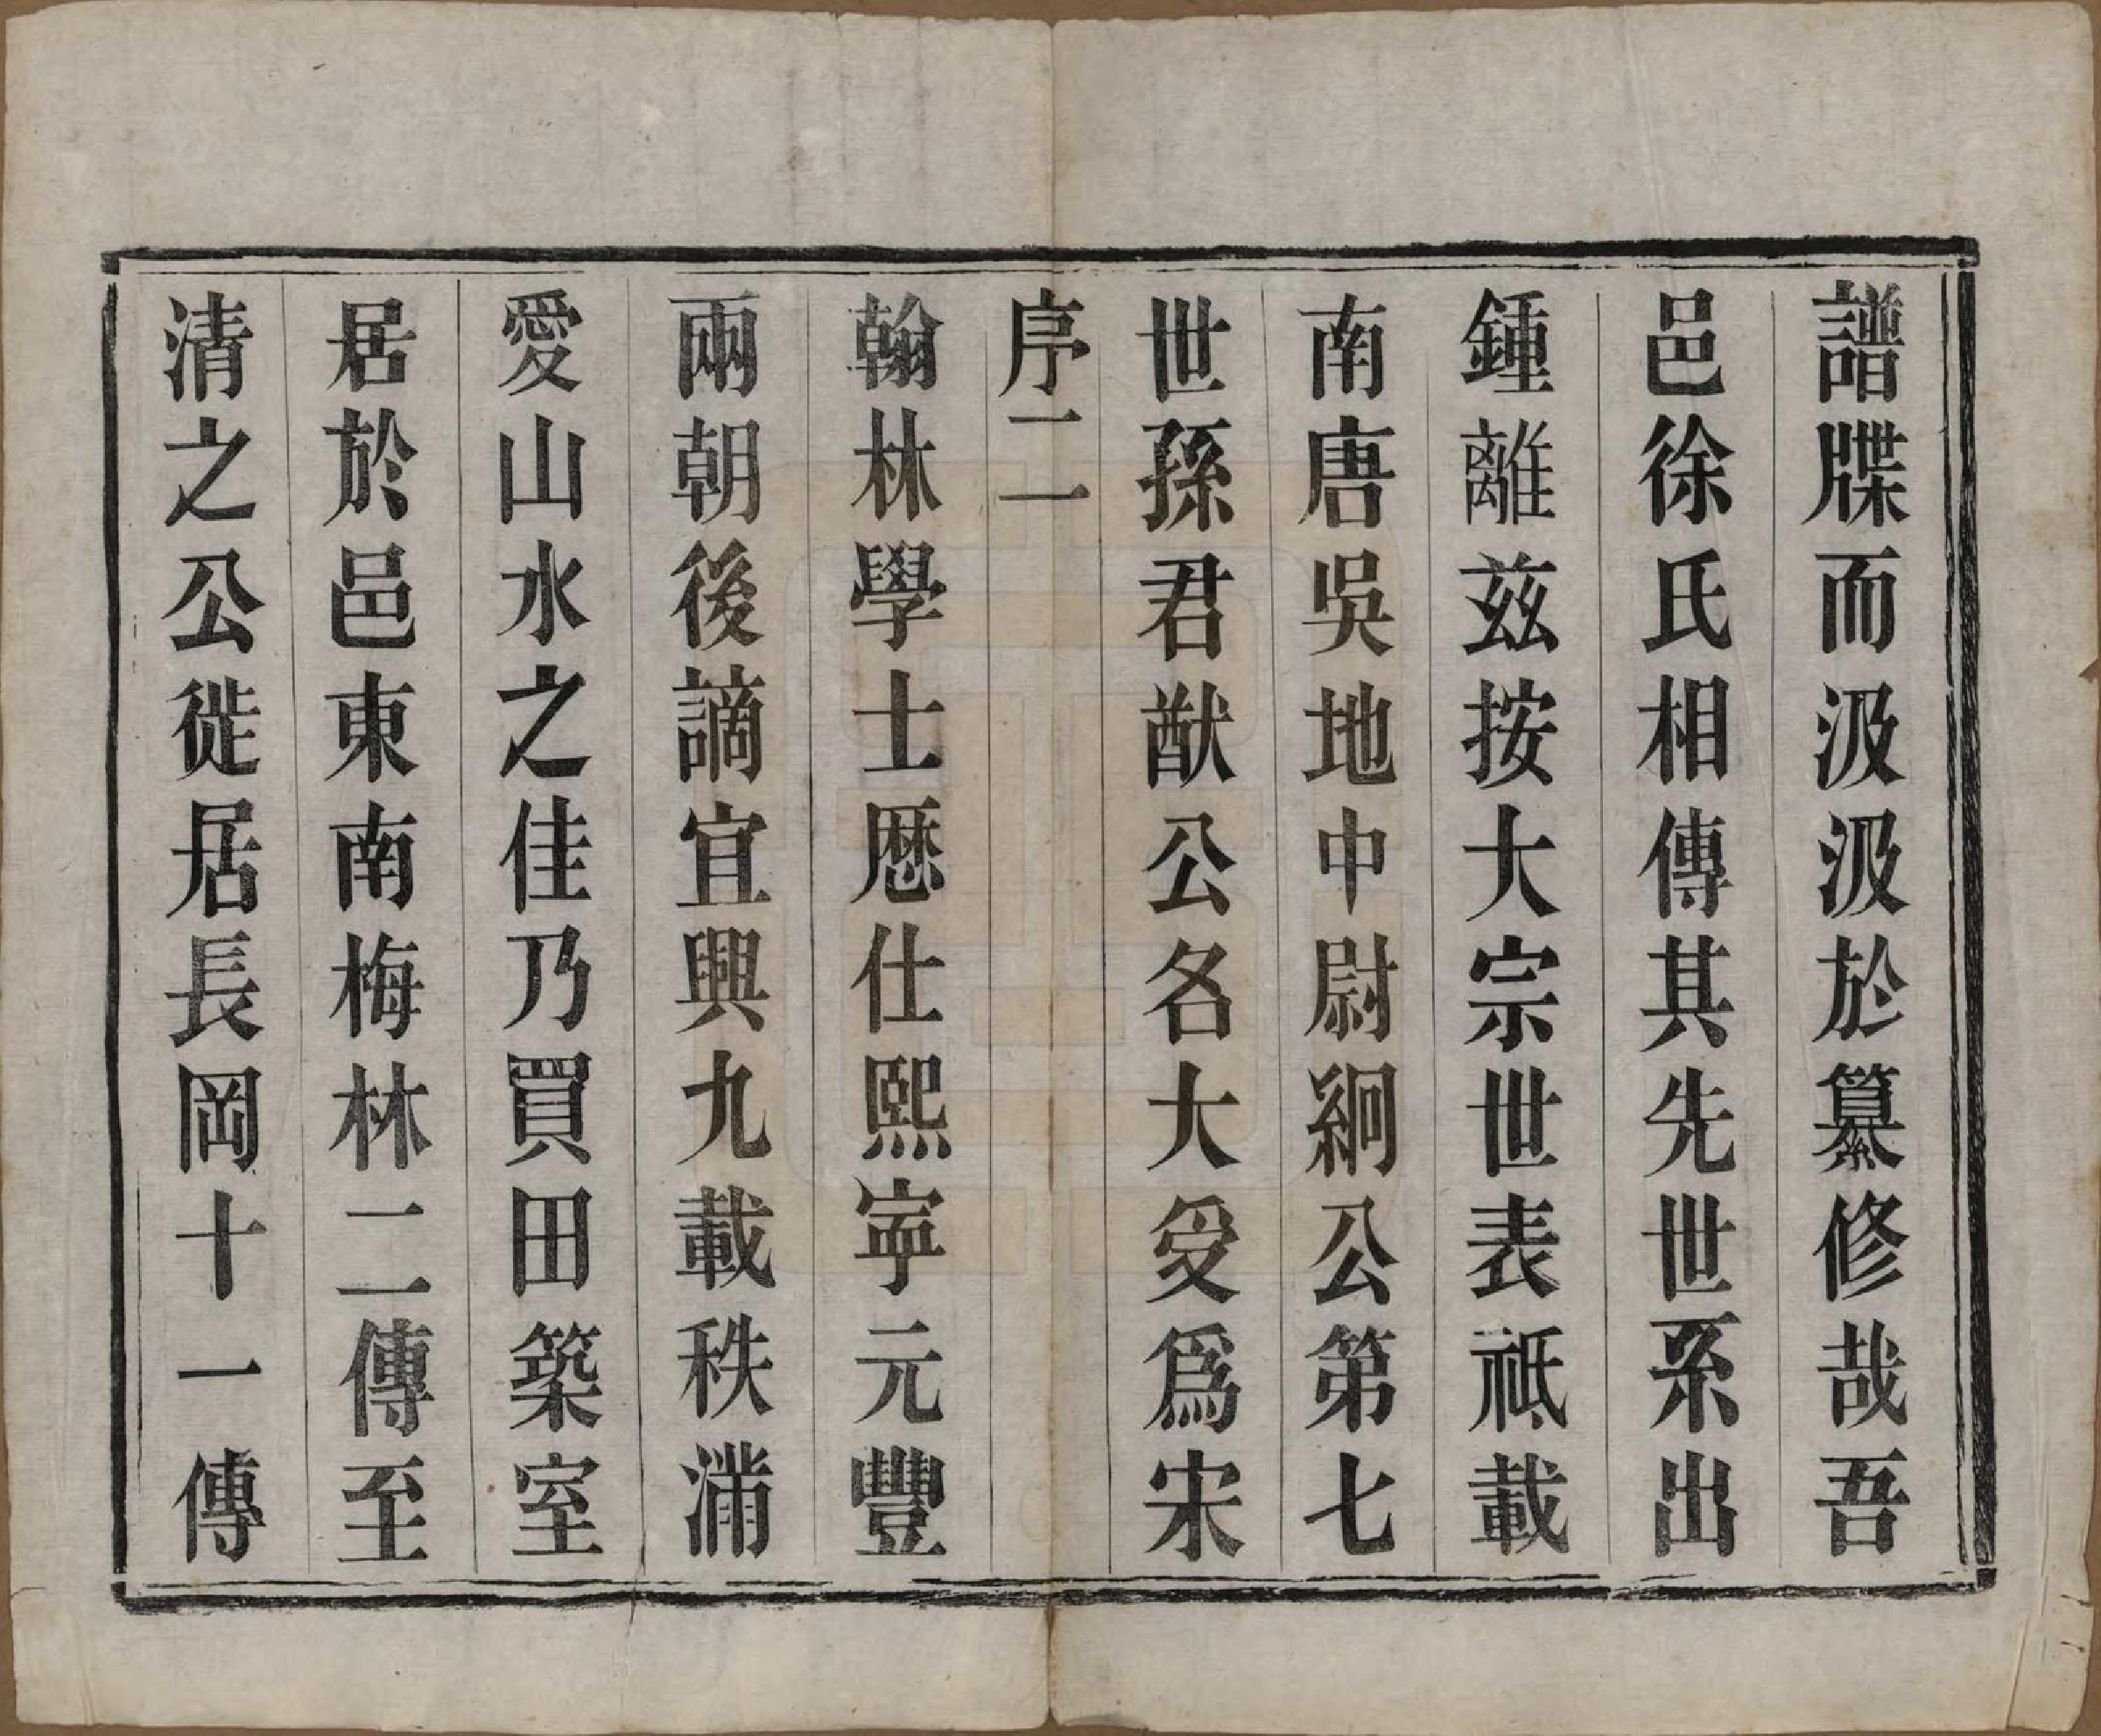 譜牒而汲汲於纂修哉吾
邑徐氏相傳其先世系出
鍾離茲按大宗世表祗載
南唐吳地中尉絅公第七
世孫君猷公名大受爲宋
序二
翰林學士厯仕熙寕元豐
兩朝後謫宜興九載秩滿
愛山水之佳乃買田築室
居於邑東南梅林二傳至
清之公徙居長岡十一傳